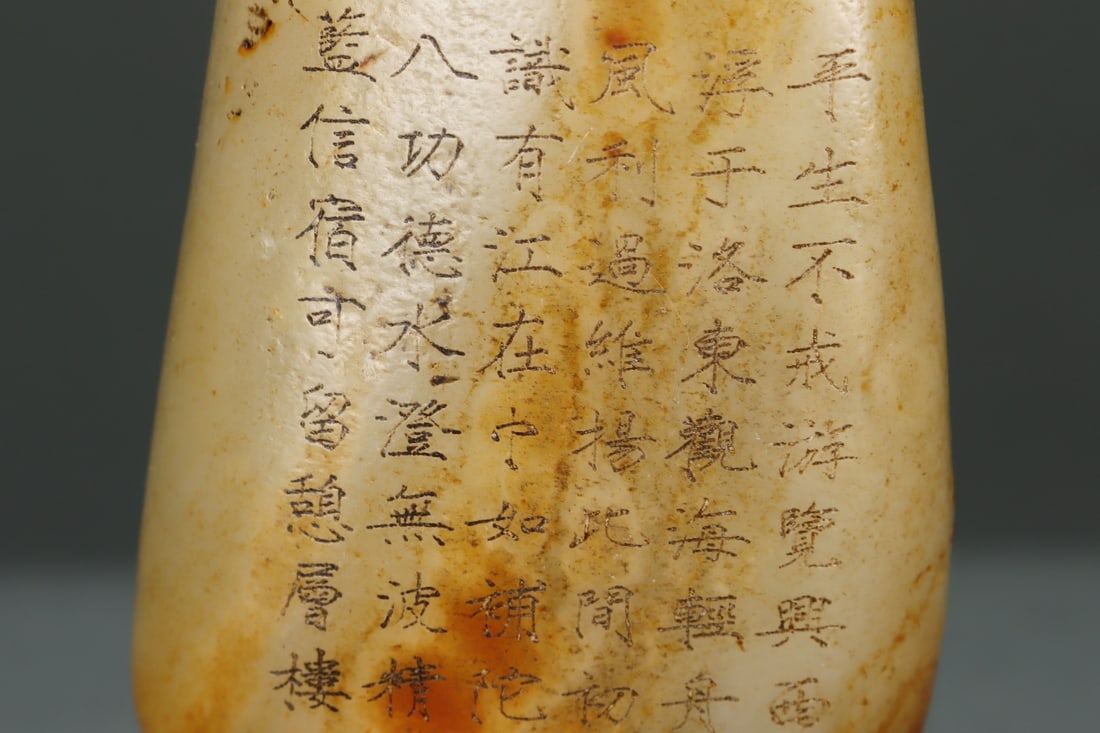 平生不戒游覽興西
浮于洛東觀海輕舟
風利過維揚此間初
識有江在宁如補陀
八功德水澄無波精
藍信宿可留憩層樓